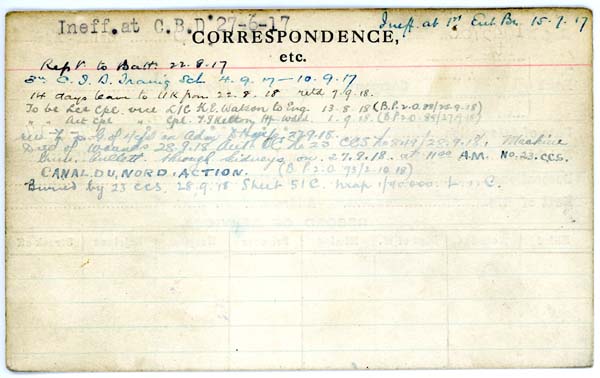 Ineff. at C.B.D. 27-6-17
Ineff. at 1st Ent Bn 15-7-17
CORRESPONDENCE,
etc.
Rept to Batt: 22.8.17
3rd C.I.D. Traing Sch 4.9.17 — 10.9.17
14 days leave to UK from 22.8.18 retd 7.9.18.
To be Lce Cpl vice L/C K.E. Watson to Eng. 13.8.18 (B.P.2.O.88/22.9.18)
" " Act Cpl " Cpl. F.S Kelton Hy Wd. 1.9.18 (B.P.2.O.89/27.9.18)
Died of wounds 28.9.18 Auth OC No 23 CCS 28.9.18. Machine
Gun bullett through kidneys on 27.9.18. at 11.00 A.M. No. 23. CCS.
CANAL. DU. NORD. ACTION. (B.P.2.O 93/2.10.18)
Buried by 23 CCS, 28.9.18 Sheet 51C. map 1/40000. L. C.